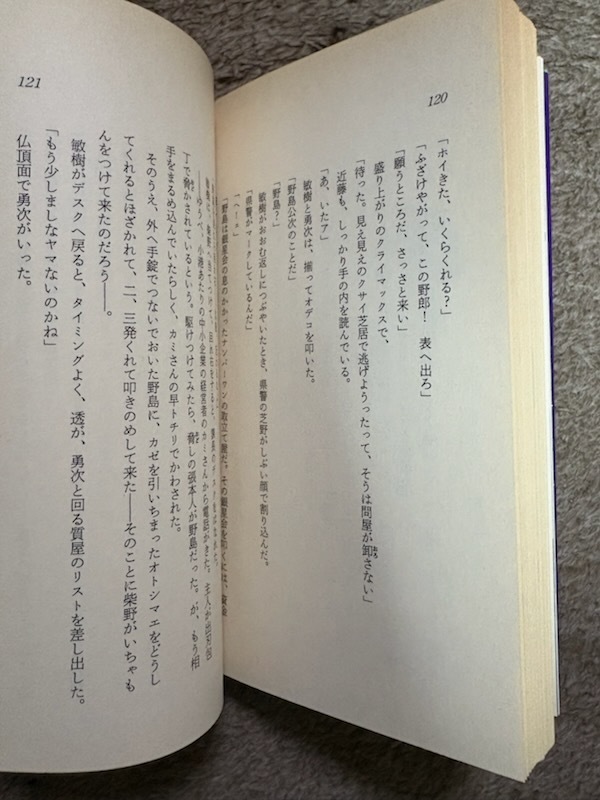 120
「ホイきた、いくらくれる?」
「ふざけやがって、この野郎! 表へ出ろ」
「願うところだ、さっさと来い」
盛り上がりのクライマックスで、
「待った。見え見えのクサイ芝居で逃げようったって、そうは問屋が卸さない」
近藤も、しっかり手の内を読んでいる。
「あ、いたァ」
敏樹と勇次は、揃ってオデコを叩いた。
「野島公次のことだ」
「野島?」
敏樹がおおむ返しにつぶやいたとき、県警の芝野がしぶい顔で割り込んだ。
「県警がマークしているんだ」
「へーえ」
「野島は銀星会の息のかかったナンバーワンの取立て屋だ。その銀星会を叩くには、資金
121
――ゆうべ、小港あたりの中小企業の経営者のカミさんから電話がきた。主人が出刃包
丁で脅かされているという。駆けつけてみたら、脅しの張本人が野島だった。が、もう相
手をまるめ込んでいたらしく、カミさんの早トチリでかわされた。
そのうえ、外へ手錠でつないでおいた野島に、カゼを引いちまったオトシマエをどうし
てくれるとほざかれて、二、三発くれて叩きのめして来た――そのことに柴野がいちゃも
んをつけて来たのだろう――。
敏樹がデスクへ戻ると、タイミングよく、透が、勇次と回る質屋のリストを差し出した。
「もう少しましなヤマないのかね」
仏頂面で勇次がいった。